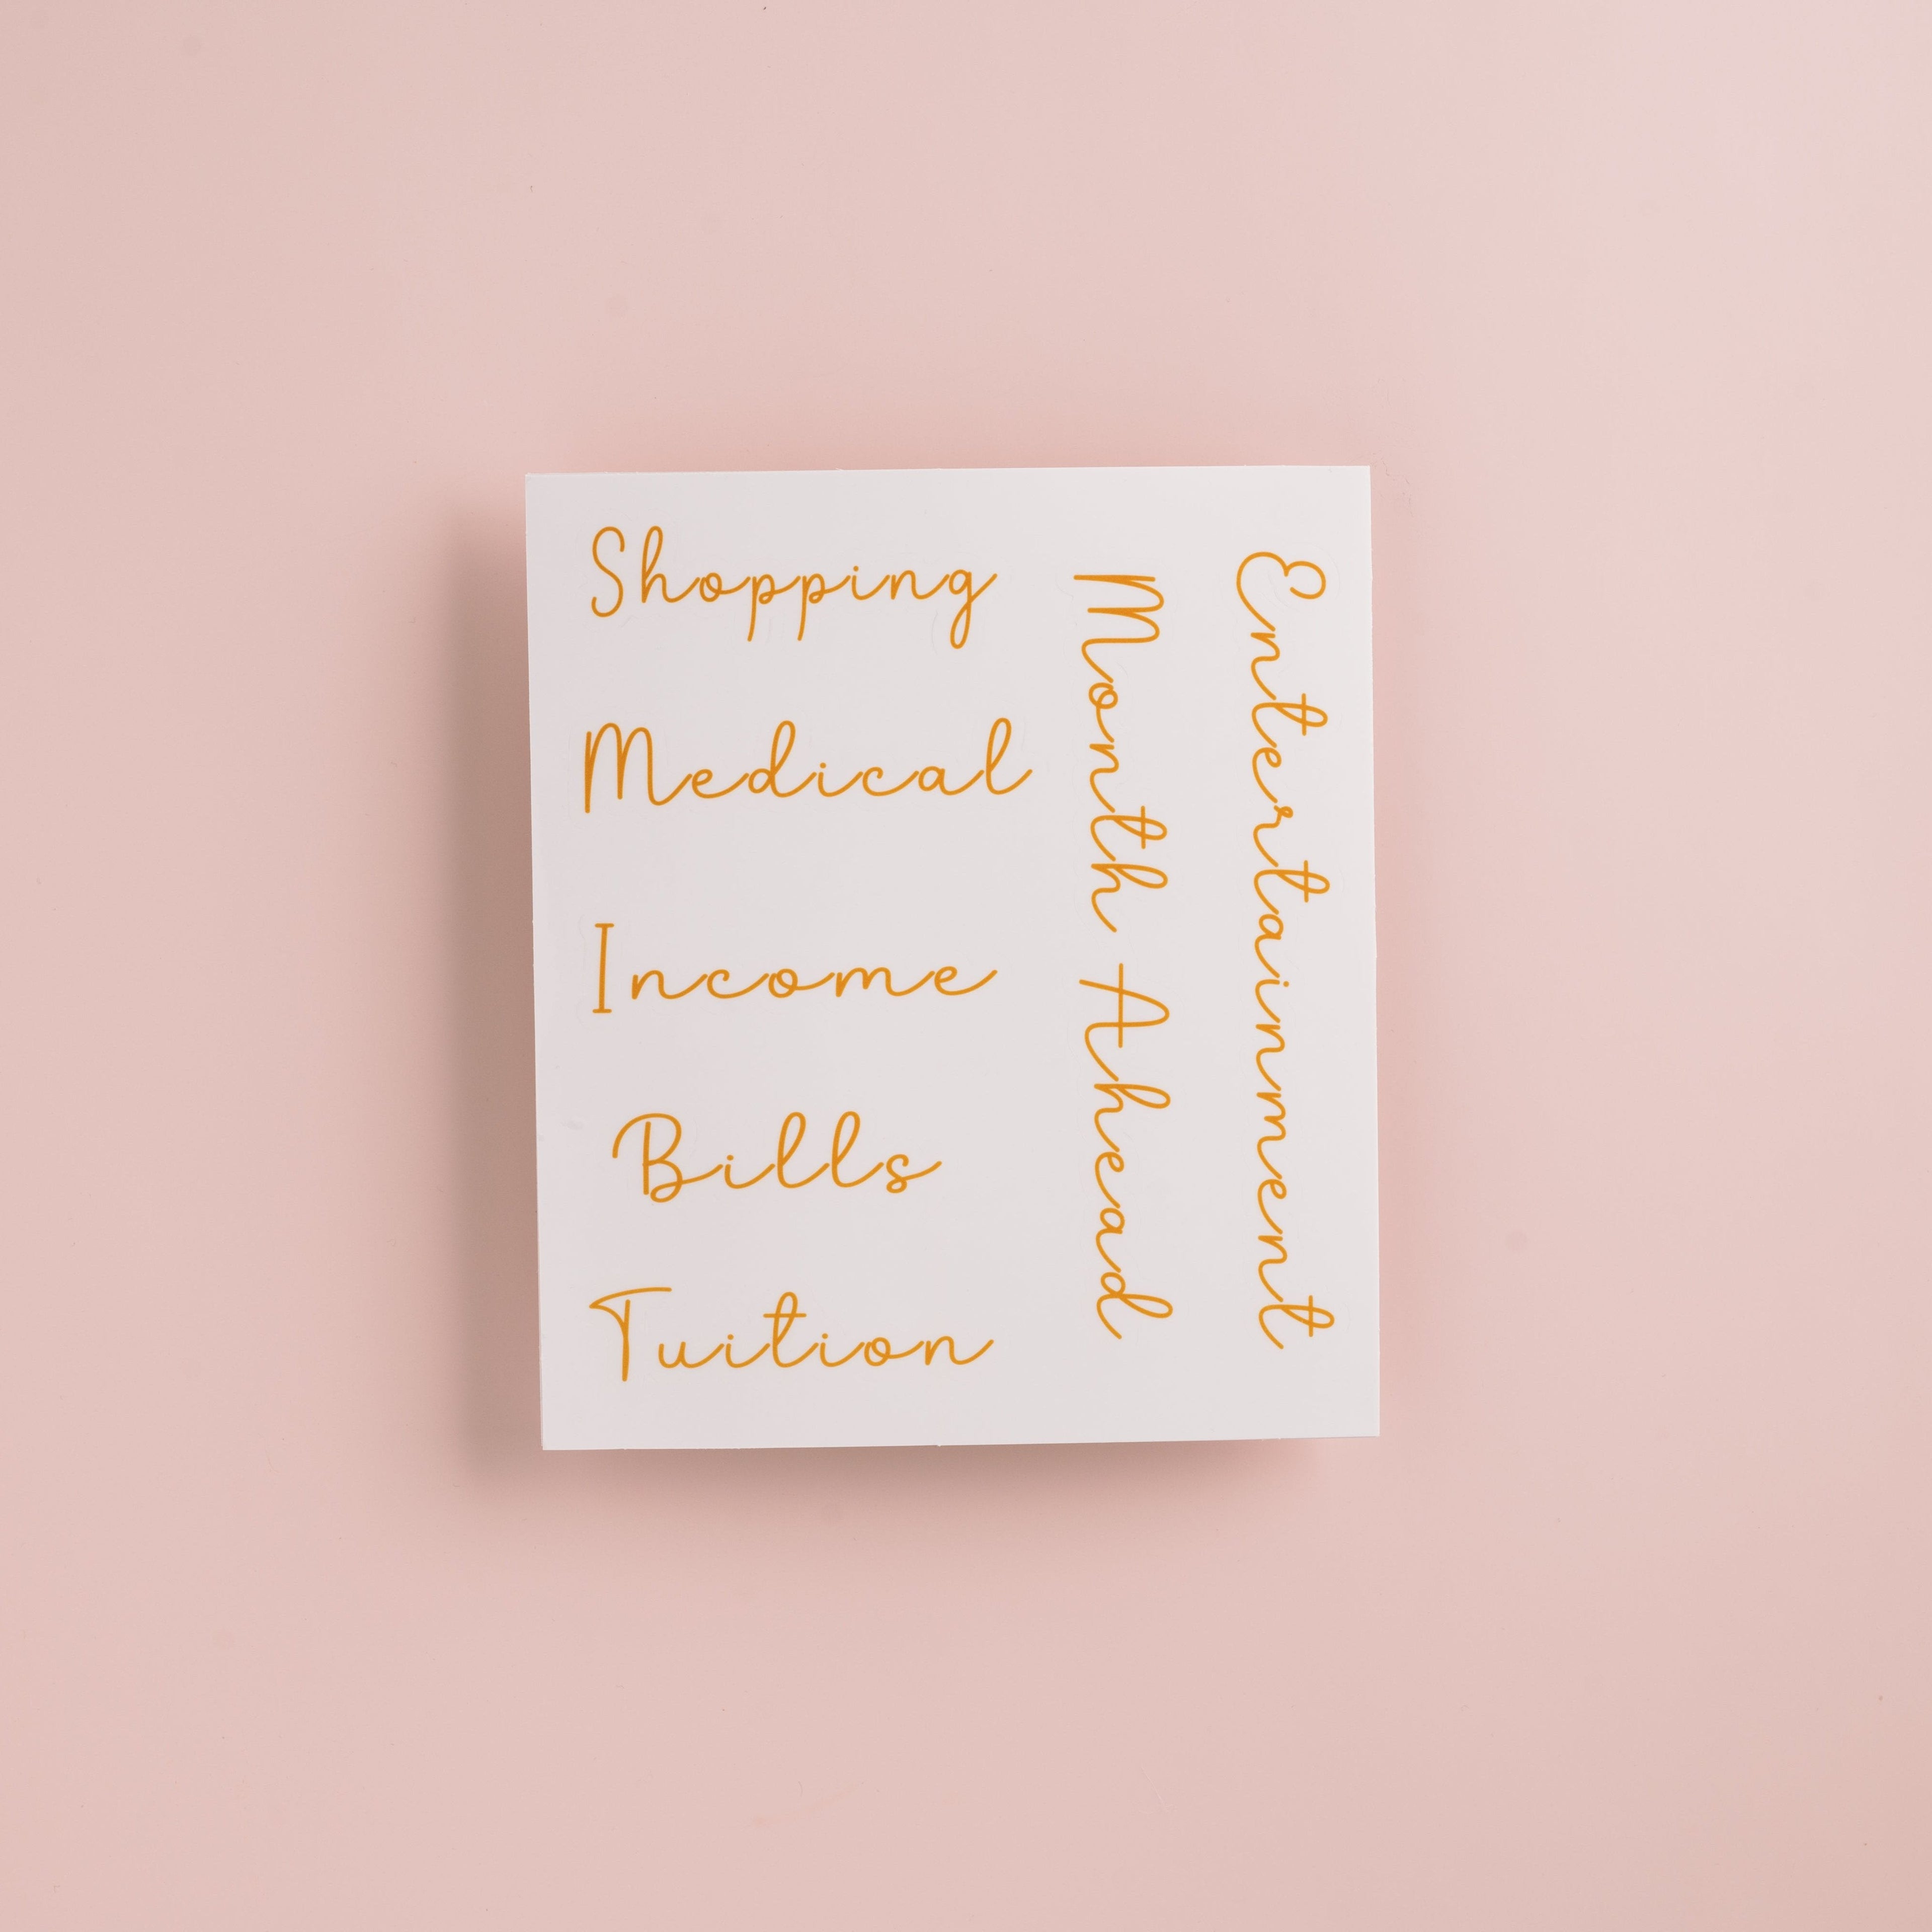 Shopping
Medical
Income
Bills
Tuition
Month Ahead
Entertainment